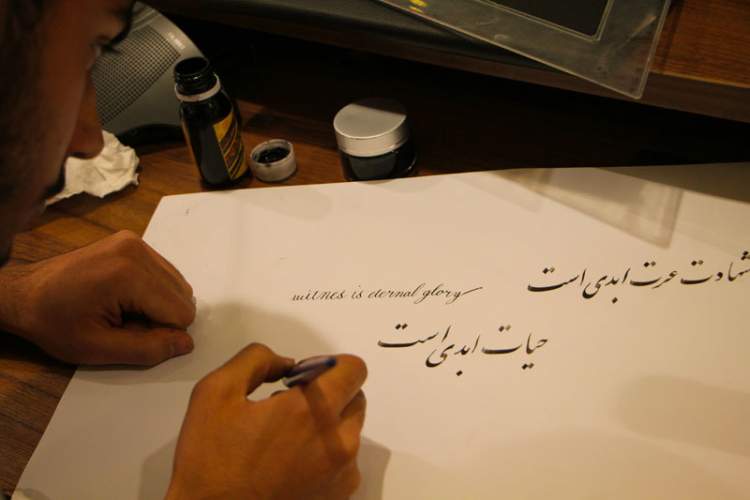 شهادت عزت ابدی است
witnes is eternal glory
حیات ابدی است